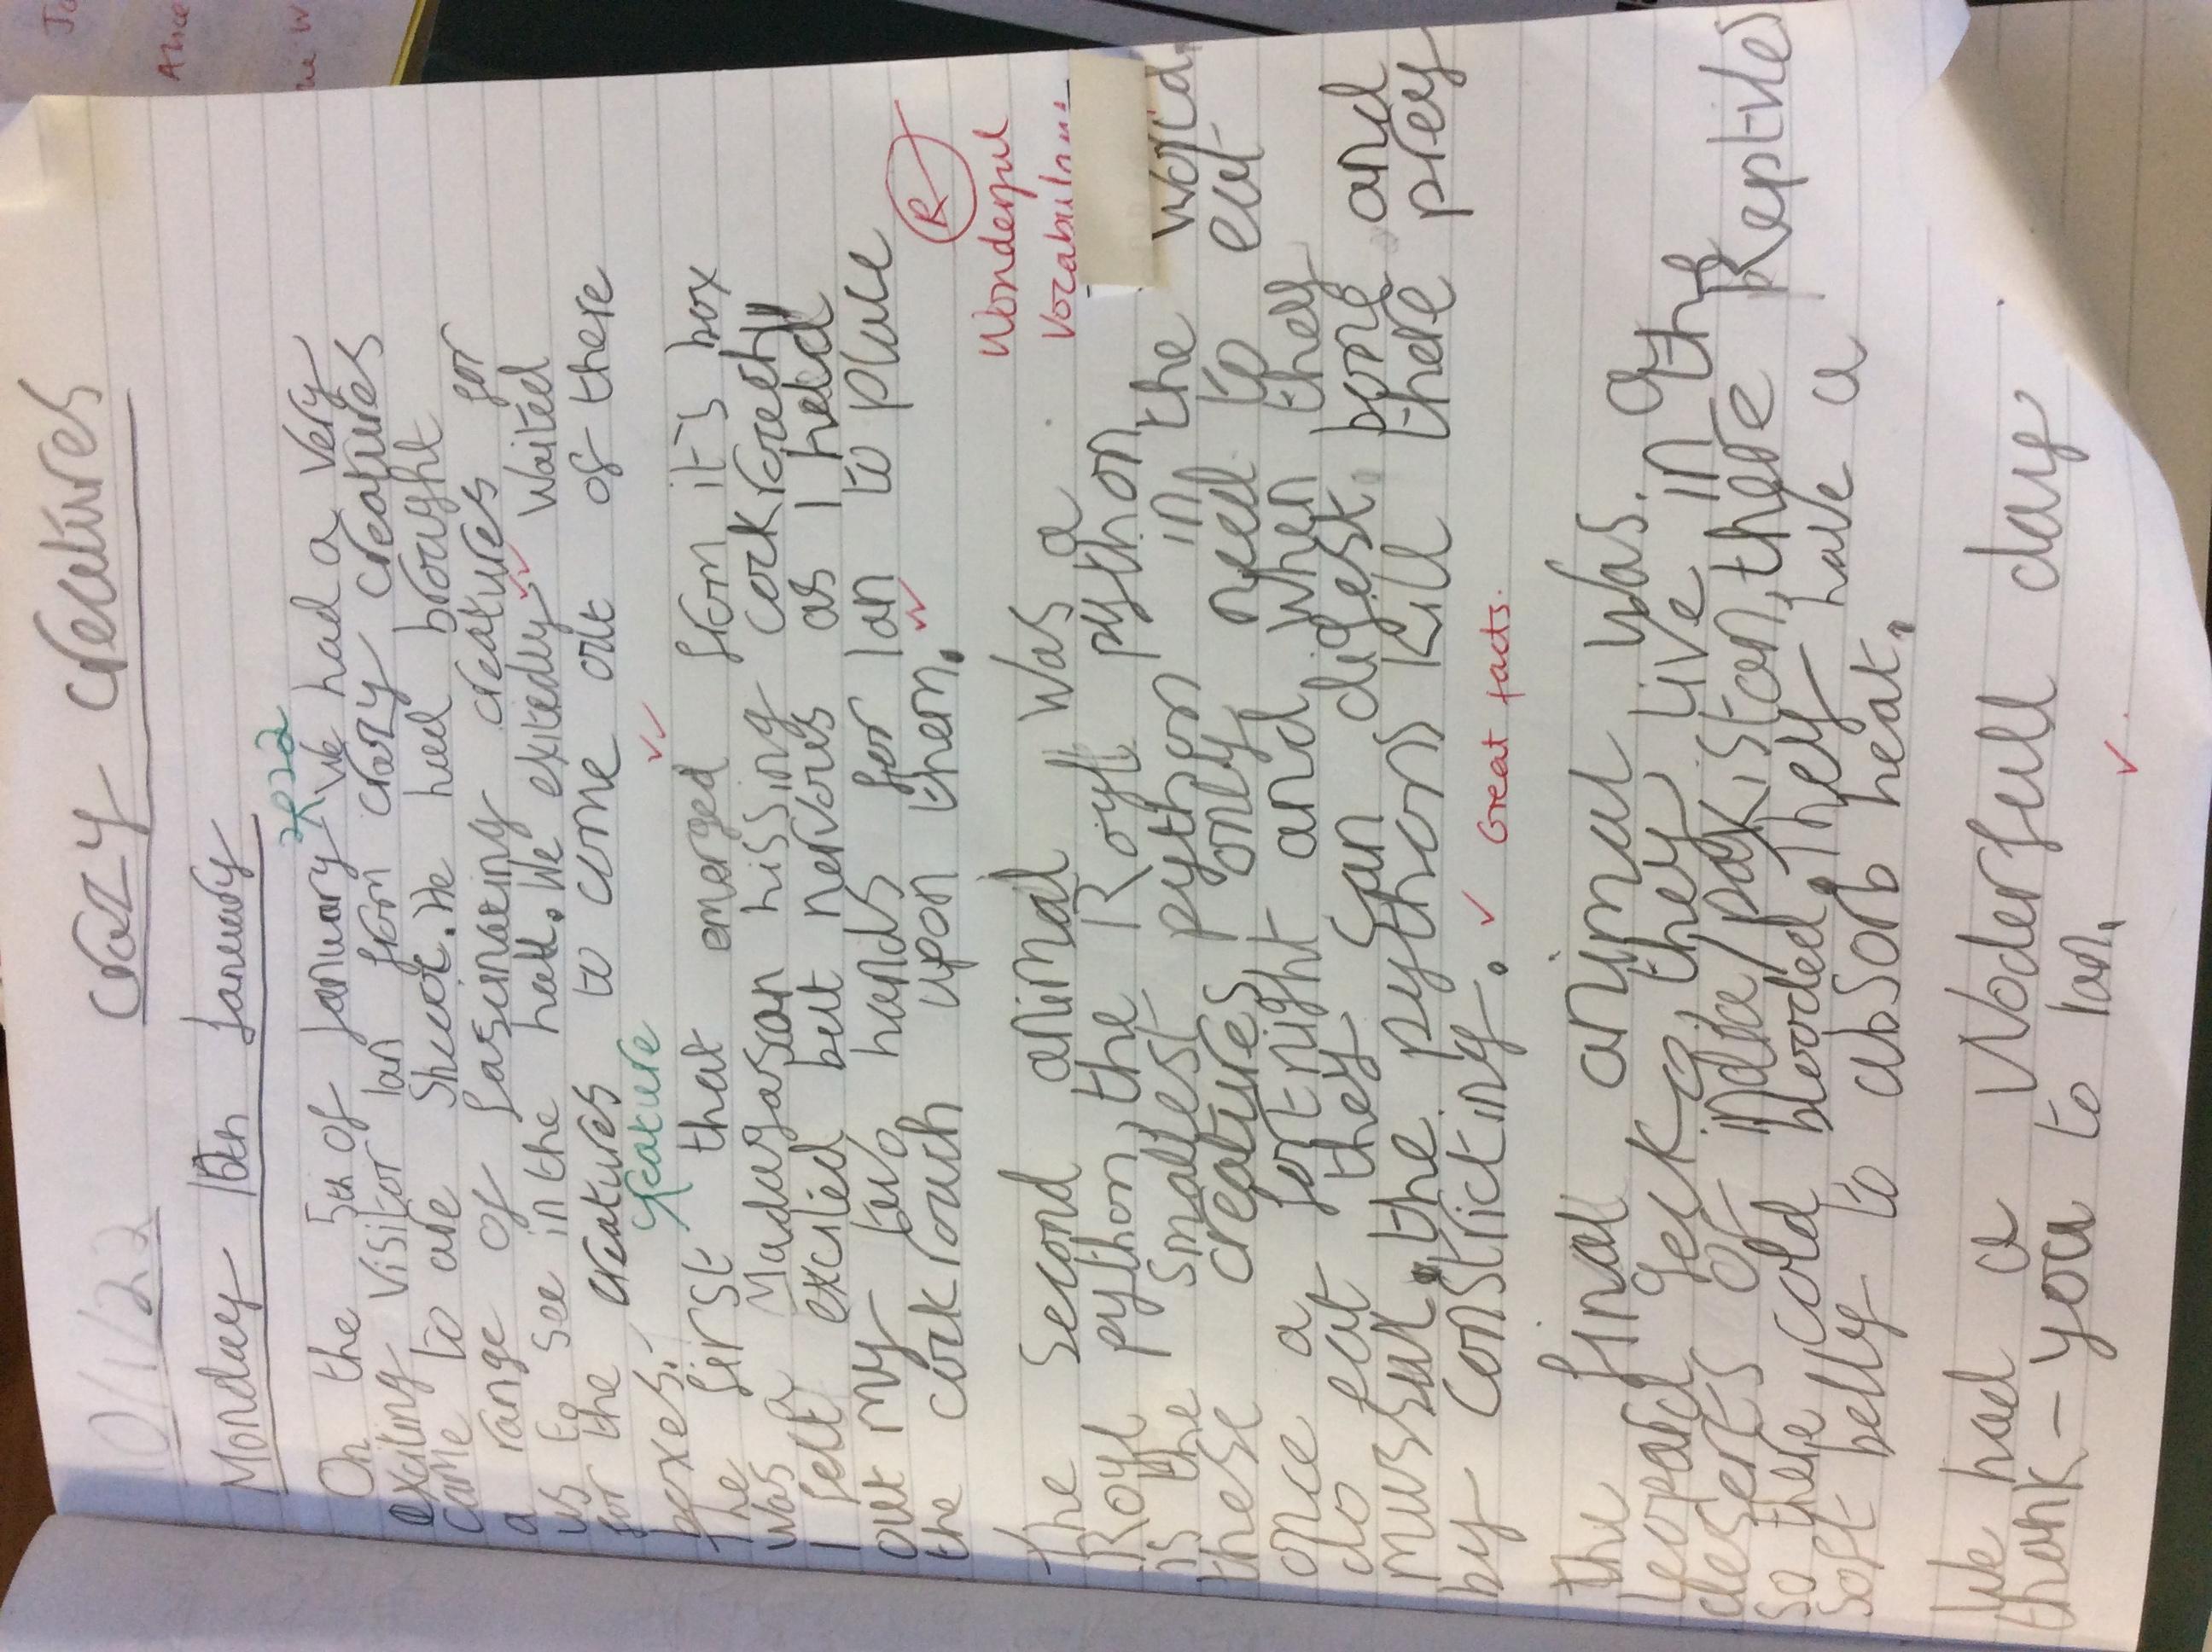 10/1/22
crazy creatures
Monday 10th January
2022
On the 5th of January we had a very
exciting visitor Ian from crazy creatures
came to are Shcool. He had brought
a range of fascinating creatures for
us to see in the hall. We exitedly waited
for the creatures to come out of there
boxes.
creature
The first that emerged from it's box
was a Madagascan hissing cockroach
I felt excited but nervous as I held
out my two hands for Ian to place
the cockroach upon them.
R
Wonderful
vocabulary
The second animal was a
Royl python, the Royl python
is the smallest python in the world,
these creatures only need to eat
once a fortnight and when they
do eat they can digest bone and
mussul, the pythons kill there prey
by constricting.
Great facts.
The final animal was. a
leopard gecko they live in the
deserts of india/pakistan, there Reptiles
so there cold blooded. They have a
soft belly to absorb heat.
We had a Woderfull day
thank-you to Ian.